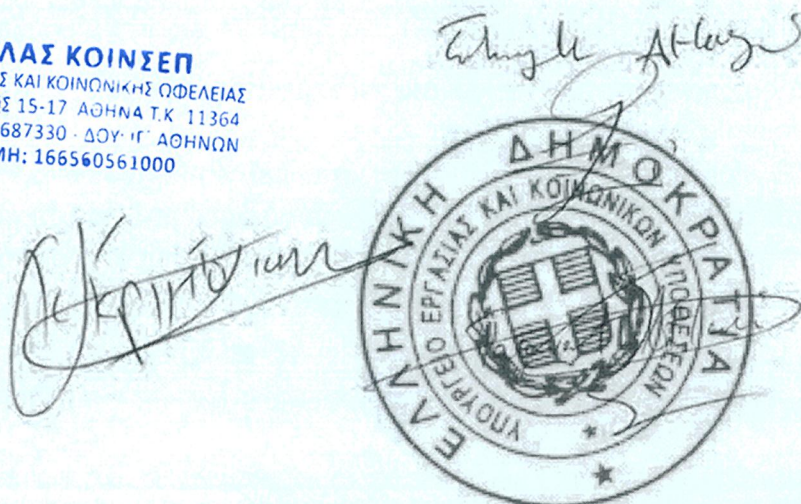 ΛΑΣ ΚΟΙΝΣΕΠ
Σ ΚΑΙ ΚΟΙΝΩΝΙΚΗΣ ΩΦΕΛΕΙΑΣ
ΟΣ 15-17 ΑΘΗΝΑ Τ.Κ 11364
687330 - ΔΟΥ ΙΓ' ΑΘΗΝΩΝ
ΜΗ: 166560561000
ΕΛΛΗΝΙΚΗ ΔΗΜΟΚΡΑΤΙΑ
ΥΠΟΥΡΓΕΙΟ ΕΡΓΑΣΙΑΣ ΚΑΙ ΚΟΙΝΩΝΙΚΩΝ ΥΠΟΘΕΣΕΩΝ